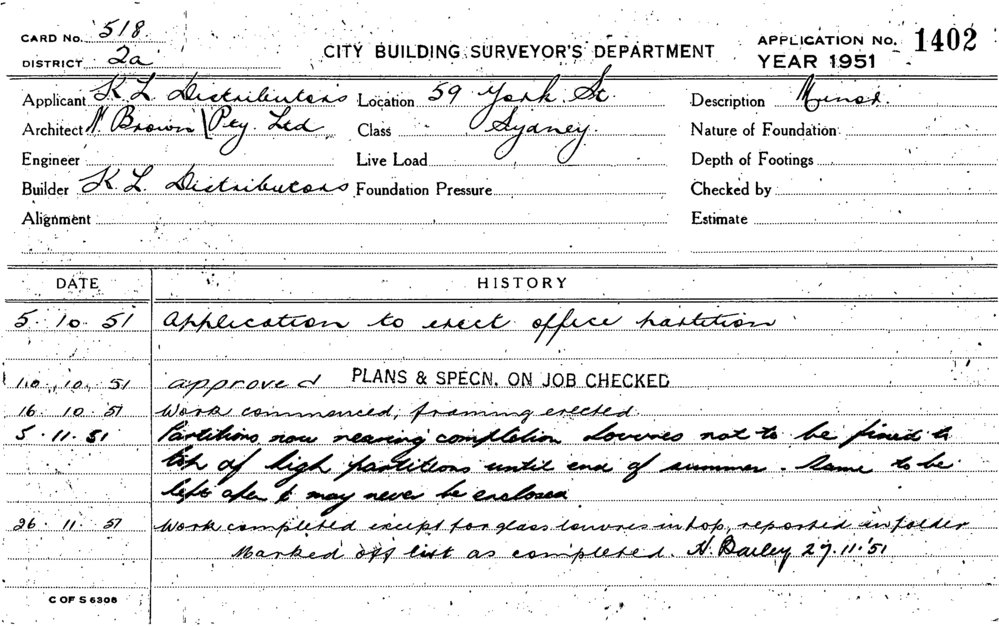 CARD No. 518.
DISTRICT 2a
CITY BUILDING SURVEYOR'S DEPARTMENT
APPLICATION No. 1402
YEAR 1951
Applicant K. L. Distributors Location 59 York St. Description Minor.
Architect N. Brown \ Pty. Ltd Class Sydney. Nature of Foundation
Engineer Live Load Depth of Footings
Builder K. L. Distributors Foundation Pressure Checked by
Alignment Estimate
DATE HISTORY
5. 10. 51 Application to erect office partition
10. 10. 51 approved PLANS & SPECN. ON JOB CHECKED
16. 10. 51 Work commenced, framing erected.
5. 11. 51 Partitions now nearing completion Louvres not to be fixed to
top of high partitions until end of summer. Same to be
left open & may never be enclosed
26. 11. 51 Work completed except for glass louvres in top, reported in folder
Marked off list as completed. H. Bailey 29.11.'51
C OF S 6308